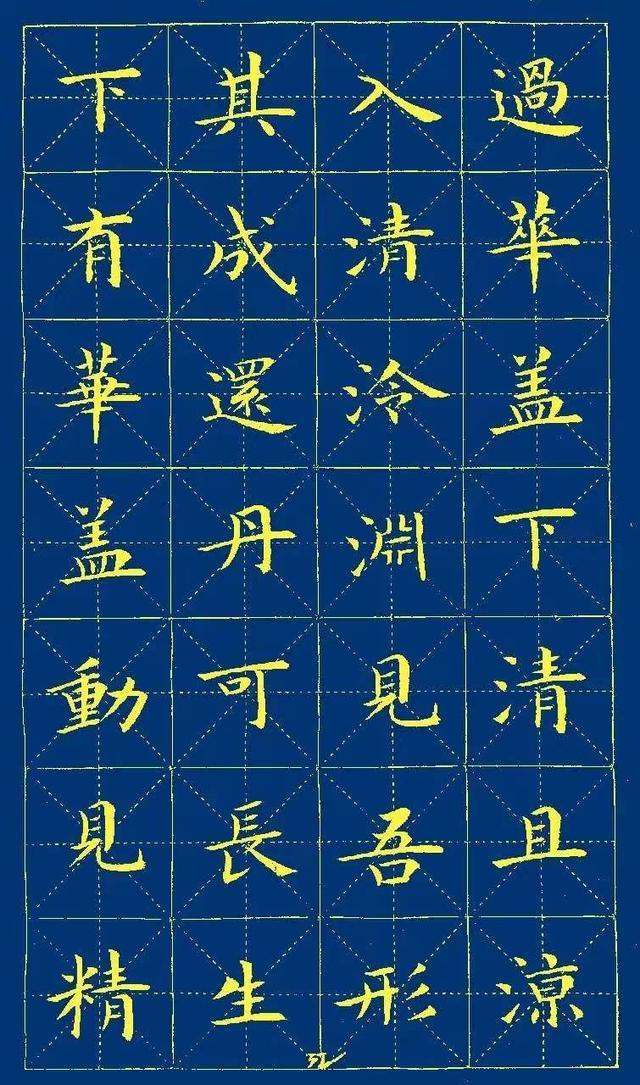 過華盖下清且涼
入清泠淵見吾形
其成還丹可長生
下有華盖動見精